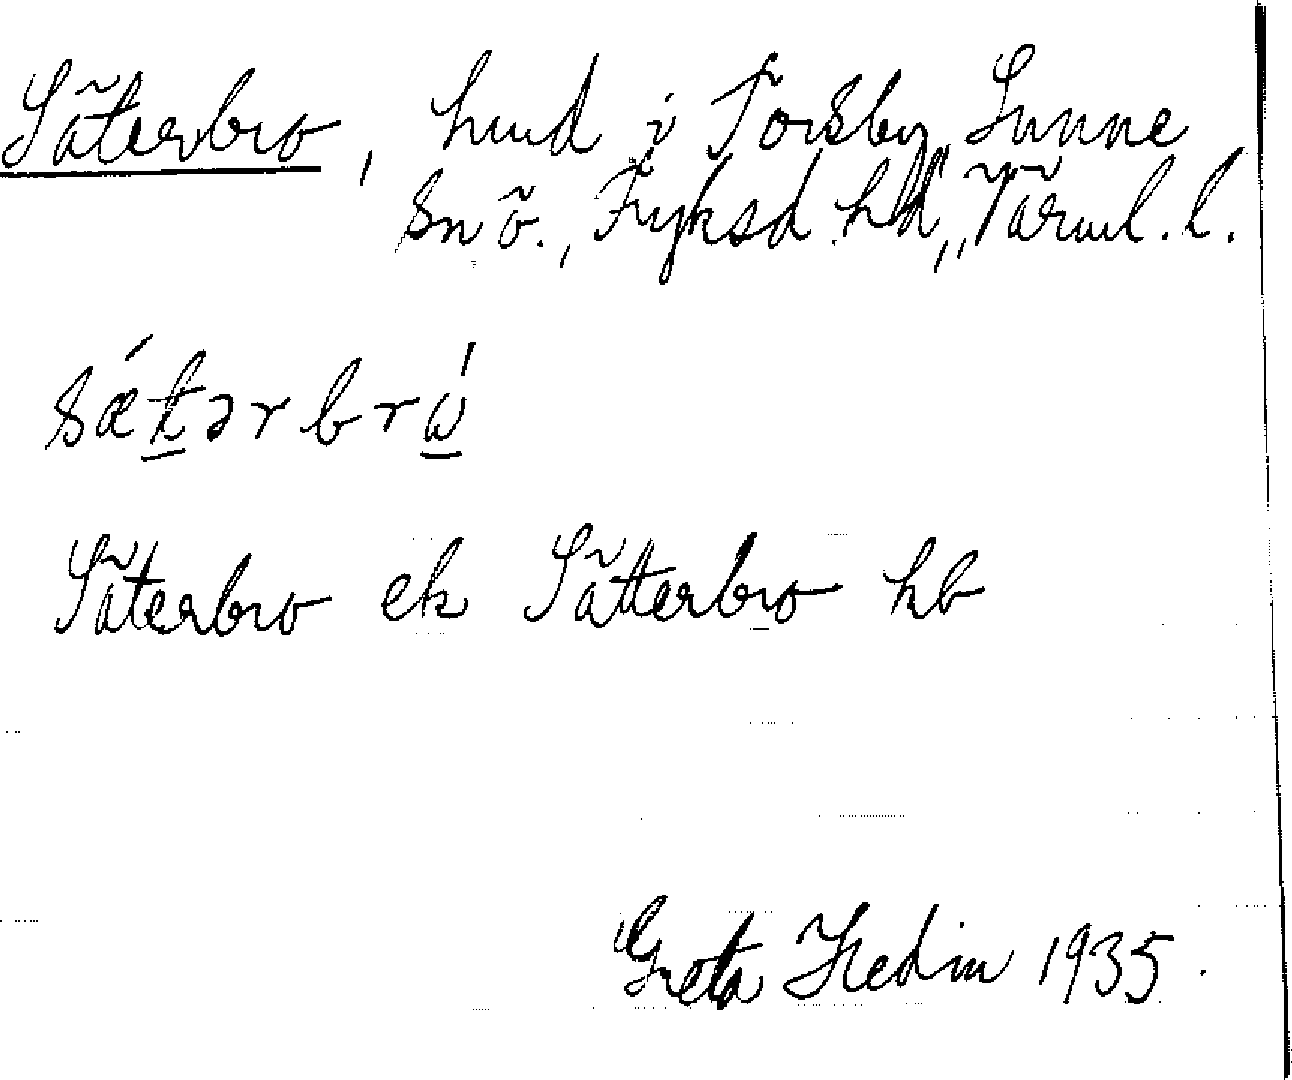 Säterbro, hmd i Torsby, Sunne
sn ö., Fryksd. hd, Värml. l.
sǽt̲ərbrώ̲
Säterbro ek Sätterbro kb
Greta Hedin 1935.